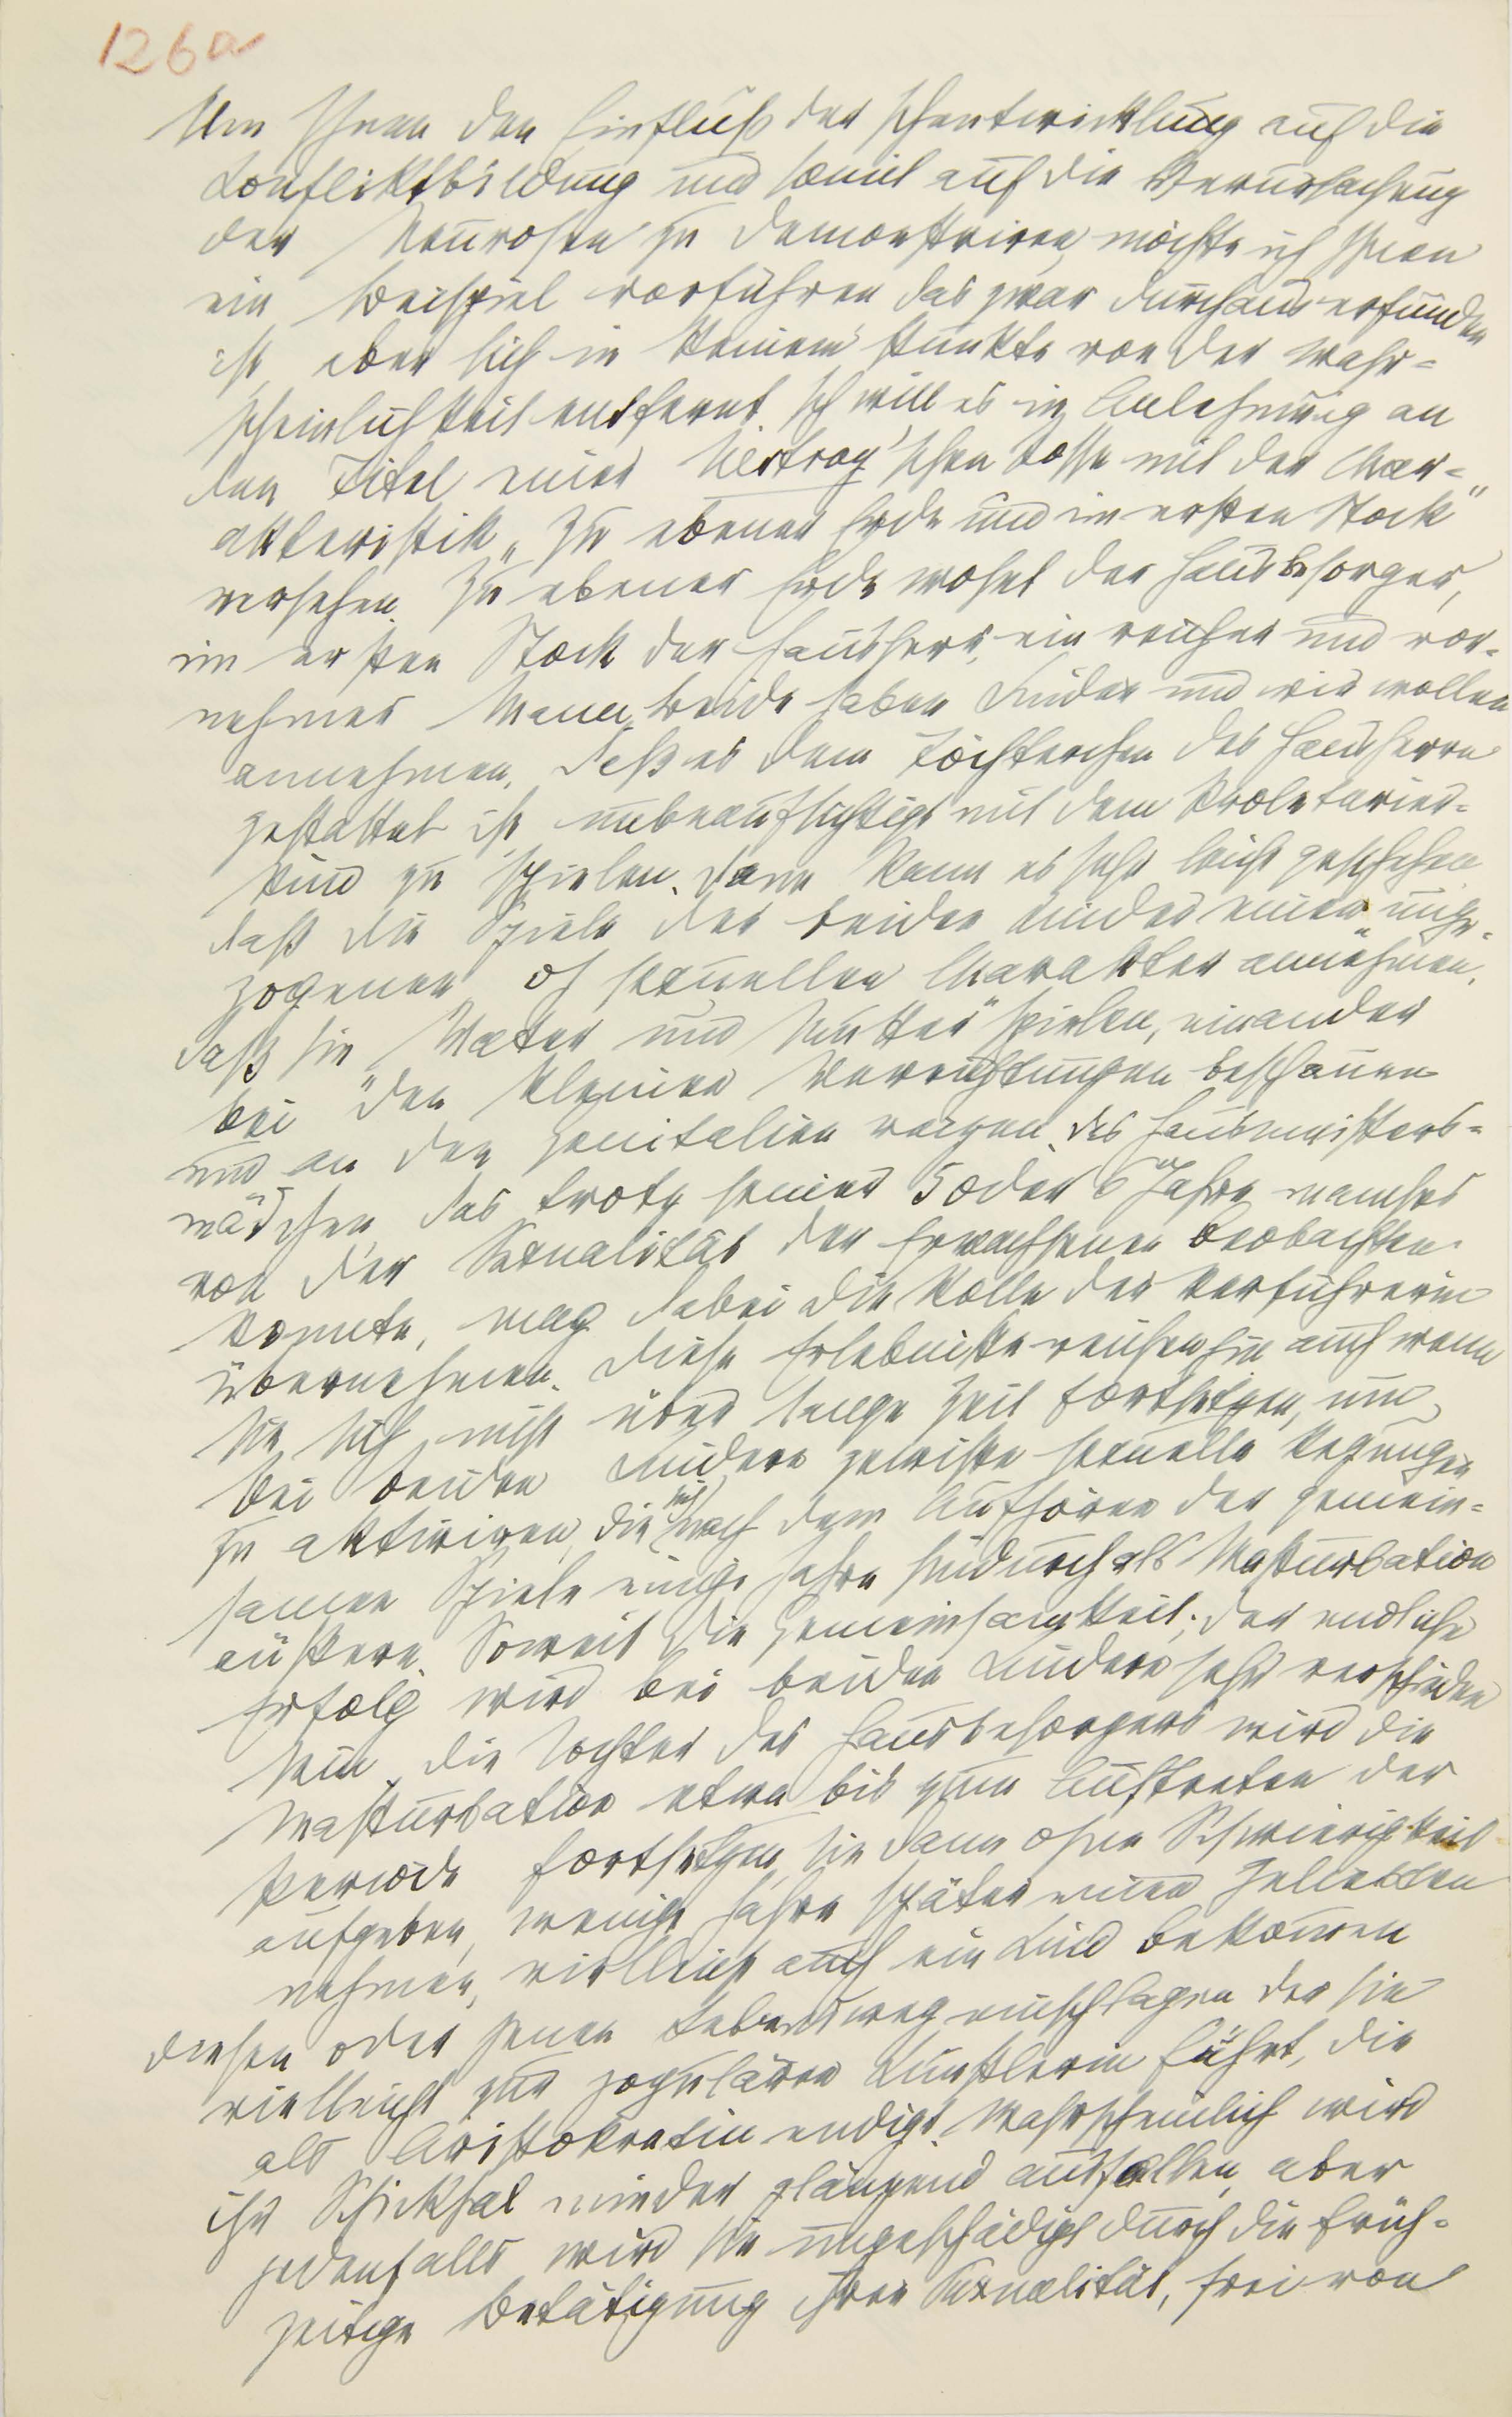 126a
Um Ihnen den Einfluß der Ichentwicklung auf die
Konfliktbildung und somit auf die Verursachung
der Neurosen zu demonstriren, möchte ich Ihnen
ein Beispiel vorführen das zwar durchaus erfunden
ist, aber sich in keinem Punkte von der Wahr-
scheinlichkeit entfernt. Ich will es in Anlehnung an
den Titel einer Nestroy'schen Posse mit der Char-
akteristik „Zu ebener Erde und im ersten Stock“
versehen. Zu ebener Erde wohnt der Hausbesorger,
im ersten Stock der Hausherr, ein reicher und vor-
nehmer Mann. Beide haben Kinder und wir wollen
annehmen, daß es dem Töchterchen des Hausherrn
gestattet ist, unbeaufsichtigt mit dem Proletarier-
kind zu spielen. Dann kann es sehr leicht geschehen
daß die Spiele der beiden Kinder einen „unge-
zogenen“ dh sexuellen Charakter annehmen,
daß sie „Vater und Mutter“ spielen, einander
bei den kleinen Verrichtungen beschauen
und an den Genitalien reizen. Das Hausmeisters-
mädchen, das trotz seiner 5 oder 6 Jahre manches
von der Sexualität der Erwachsenen beobachten
konnte, mag dabei die Rolle der Verführerin
übernehmen. Diese Erlebnisse reichen hin auch wenn
sie sich nicht über lange Zeit fortsetzen, um
bei beiden Kindern gewisse sexuelle Regungen
zu aktiviren, die sich nach dem Aufhören der gemein-
samen Spiele einige Jahre hindurch als Masturbation
äußern. Soweit die Gemeinsamkeit; der endliche
Erfolg wird bei beiden Kindern sehr verschieden
sein. Die Tochter des Hausbesorgers wird die
Masturbation etwa bis zum Auftreten der
Periode fortsetzen, sie dann ohne Schwierigkeit
aufgeben, wenige Jahre später einen Geliebten
nehmen, vielleicht auch ein Kind bekommen
diesen oder jenen Lebensweg einschlagen der sie
vielleicht zur populären Künstlerin führt, die
als Aristokratin endigt. Wahrscheinlich wird
ihr Schicksal minder glänzend ausfallen, aber
jedenfalls wird sie ungeschädigt durch die früh-
zeitige Betätigung ihrer Sexualität, frei von